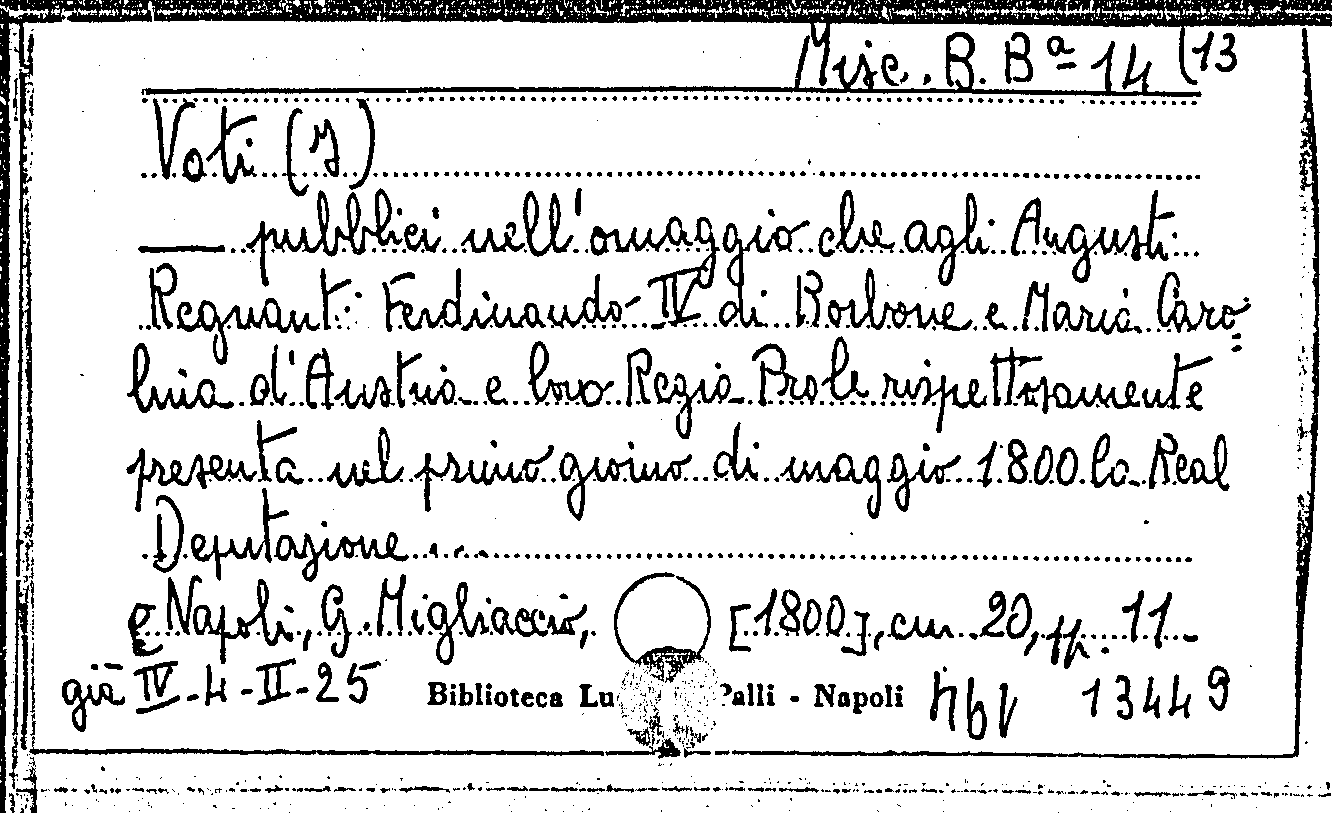 Misc. B. Bª 14 (13
Voti (I)
—— pubblici nell'omaggio che agli Augusti
Regnanti Ferdinando IV di Borbone e Maria Caro=
lina d'Austria e loro Regia Prole rispettosamente
presenta nel primo giorno di maggio 1800 la Real
Deputazione ....
Napoli, G. Migliaccio, [1800], cm. 20, pp. 11
già IV-4-II-25 Biblioteca Lu Palli - Napoli 13449